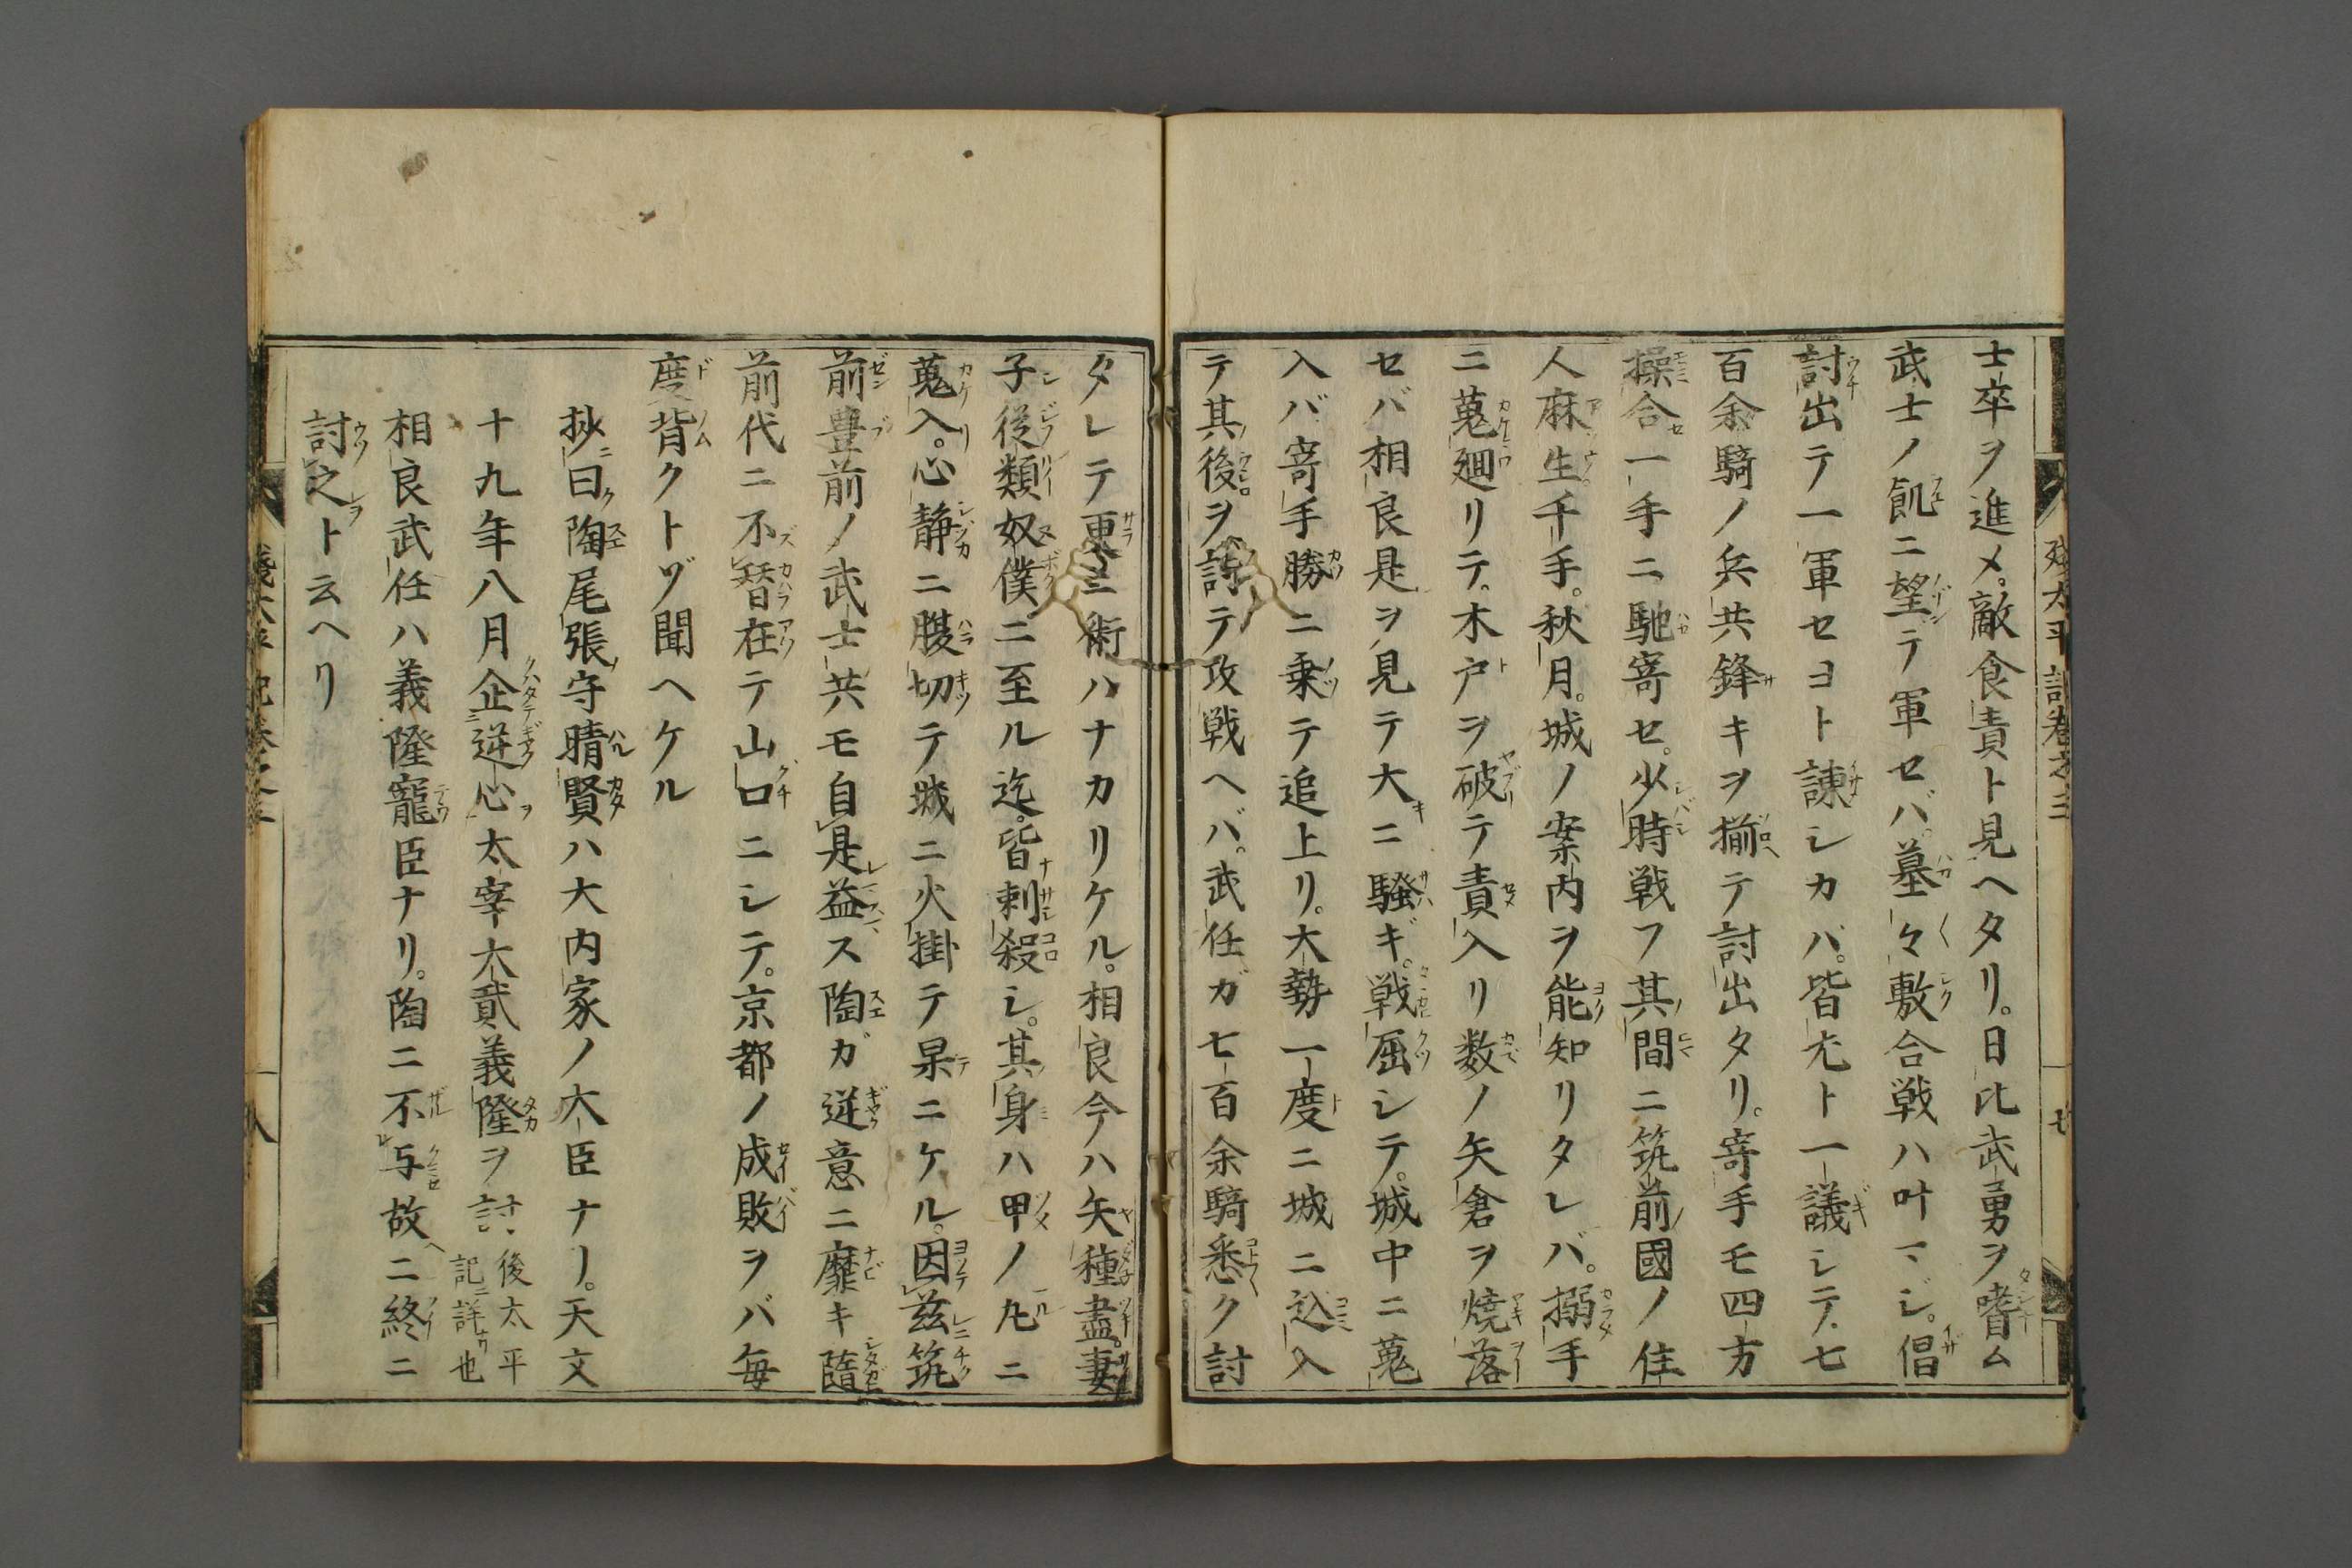 士卒ヲ進メ。敵食責ト見ヘタリ。日比武勇ヲ嗜ム
武士ノ飢ニ望テ軍セバ。墓々敷合戦ハ叶マジ。倡
討出テ一軍セヨト諌シカバ。皆尤ト一議シテ。七
百余騎ノ兵共鋒キヲ揃テ討出タリ。寄手モ四方
操合一手ニ馳寄セ。少時戦フ其間ニ筑前國ノ住
人麻生千手。秋月。城ノ案内ヲ能知リタレバ。搦手
ニ蒐廻リテ。木戸ヲ破テ責入リ数ノ矢倉ヲ焼落
セバ相良是ヲ見テ大ニ騒ギ。戦屈シテ。城中ニ蒐
入バ寄手勝ニ乗テ追上リ。大勢一度ニ城ニ込入
テ其後ヲ討テ攻戦ヘバ。武任ガ七百余騎悉ク討
タレテ更ニ術ハナカリケル。相良今ハ矢種盡。妻
子後類奴僕ニ至ル迄。皆刺殺シ。其身ハ甲ノ丸ニ
蒐入。心静ニ腹切テ城ニ火掛テ杲ニケル。因茲筑
前豊前ノ武士共モ自是益ス陶ガ逆意ニ靡キ隨
前代ニ不替在テ山口ニシテ。京都ノ成敗ヲバ毎
度背クトゾ聞ヘケル
抄曰陶尾張守晴賢ハ大内家ノ大臣ナリ。天文
十九年八月企逆心太宰大貳義隆ヲ討後太平記ニ詳ナリ也
相良武任ハ義隆寵臣ナリ。陶ニ不与故ニ終ニ
討之ト云ヘリ